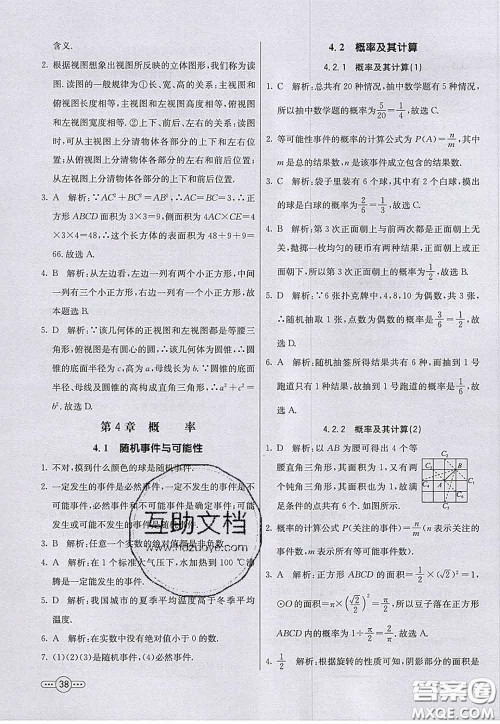 含义.
2. 根据视图想象出视图所反映的立体图形,我们称为读
图. 读图的一般规律为①长、宽、高的关系:主视图和
俯视图长度相等,主视图和左视图高度相等,左视图和
俯视图宽度相等. ②上下、前后、左右的关系:主、
俯视图上分清物体各部分的上下和左右位置;主、
左视图上分清物体各部分的左右和前后位置;
从左视图上分清物体各部分的上下和前后位置.
3. A 解析:∵AC²+BC²=AB²,∴AC=3,∴正方
形ABCD面积为3×3=9,侧面矩形ACFE面积为
4×3×4=48,∴这个长方体的面积为48+9+9=
66.故选A.
4. B 解析:从左边看,左边一列有两个小正方形,中间
一列有三个小正方形,右边有一列一个小正方形,故
本题选B.
5. D 解析:∵该几何体的正视图和左视图都是等腰三
角形,俯视图是有圆心的圆,∴该几何体是圆锥. ∵圆
锥的底面半径、母线及高构成直角三角形,∴a²+c²=
b².故选D.
第4章 概 率
4.1 随机事件与可能性
1. 不对,摸到什么颜色的球是随机事件.
2. 一定发生的事件是必然事件,一定不发生的事件是不
可能事件,必然事件和不可能事件是确定事件;可能
发生或可能不发生的事件是随机事件.
3. B 解析:任意一个实数的绝对值都是非负数.
4. A 解析:在1个标准大气压下,水加热到100℃沸
腾是一定能发生的事件.
5. D 解析:我国城市的夏季平均温度高于冬季平均
温度.
6. A 解析:在实数中没有绝对值小于0的数.
7. (1)(2)(3)是随机事件,(4)是必然事件.
38
4.2 概率及其计算
4.2.1 概率及其计算(1)
1. C 解析:总共有20种情况,抽中数学题有5种情
况,所以抽中数学题的概率为5/20=1/4,故选C.
2. 等可能性事件的概率的计算公式为P(A)=m/n,其
中m是总的结果数,n是该事件成立包含的结果数.
3. C 解析:袋子里装有6个球,其中有2个白球,摸出
的球是白球的概率为2/6=1/3.故选C.
4. B 解析:第3次正面朝上与前两次都是正面朝上无
关. 抛掷一枚均匀的硬币有两种结果,正面朝上或正
面朝下,所以第3次正面朝上的概率为1/2,故选B.
5. D 解析:∵6张扑克牌中,4,8,10为偶数,共3张,
∴随机抽取1张,点数为偶数的概率是3/6=1/2,故
选D.
6. A 解析:随机抽签所得结果共有6种,抽到1号
跑道只有1种结果,故抽到1号跑道的概率为1/6.故
选A.
4.2.2 概率及其计算(2)
1. D 解析:以AB为腰可以得到4个
等腰直角三角形,其面积也为1,有2
个钝角三角形,其面积也为1,故满足
条件的点共有6个. 如图所示.
2. 概率的计算公式P(关注的事件)=m/n(n表示关注的
事件数,m表示所有等可能事件数).
3. A 解析:假设正方形ABCD的面积=(√2)²=1,
⊙O的面积=π×(√2/2)²=π/2,∴豆子落在正方形
ABCD内的概率是1/(π/2)=2/π,故选A.
4. 1/2 解析:根据旋转的性质可知,阴影部分的面积是
互助文档
www.hdzuoye.com
答案圈
MXQE.COM